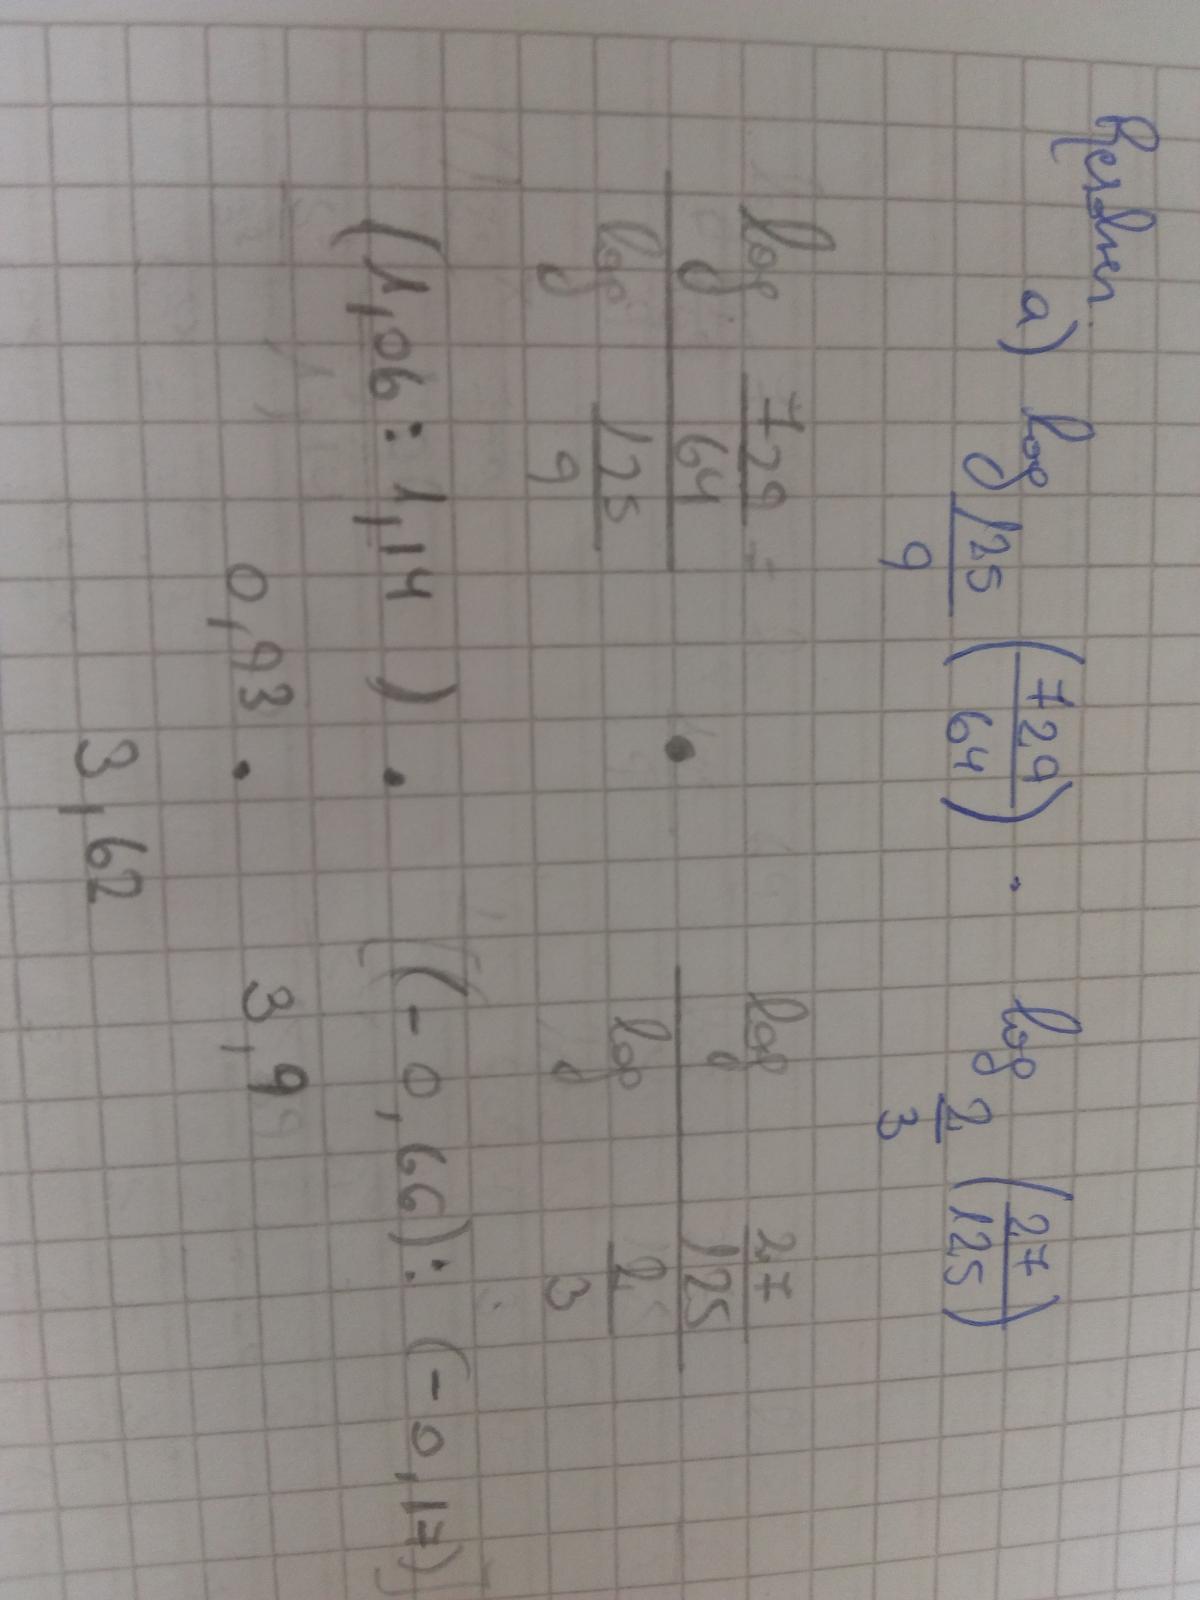 Resolver.
a) log 125/9 (729/64) . log 2/3 (27/125)
log 729/64 = log 27/125
.
log 125/9 log 2/3
(1,06 : 1,14) . [(-0,66) : (-0,17)]
0,93 . 3,9
3,62